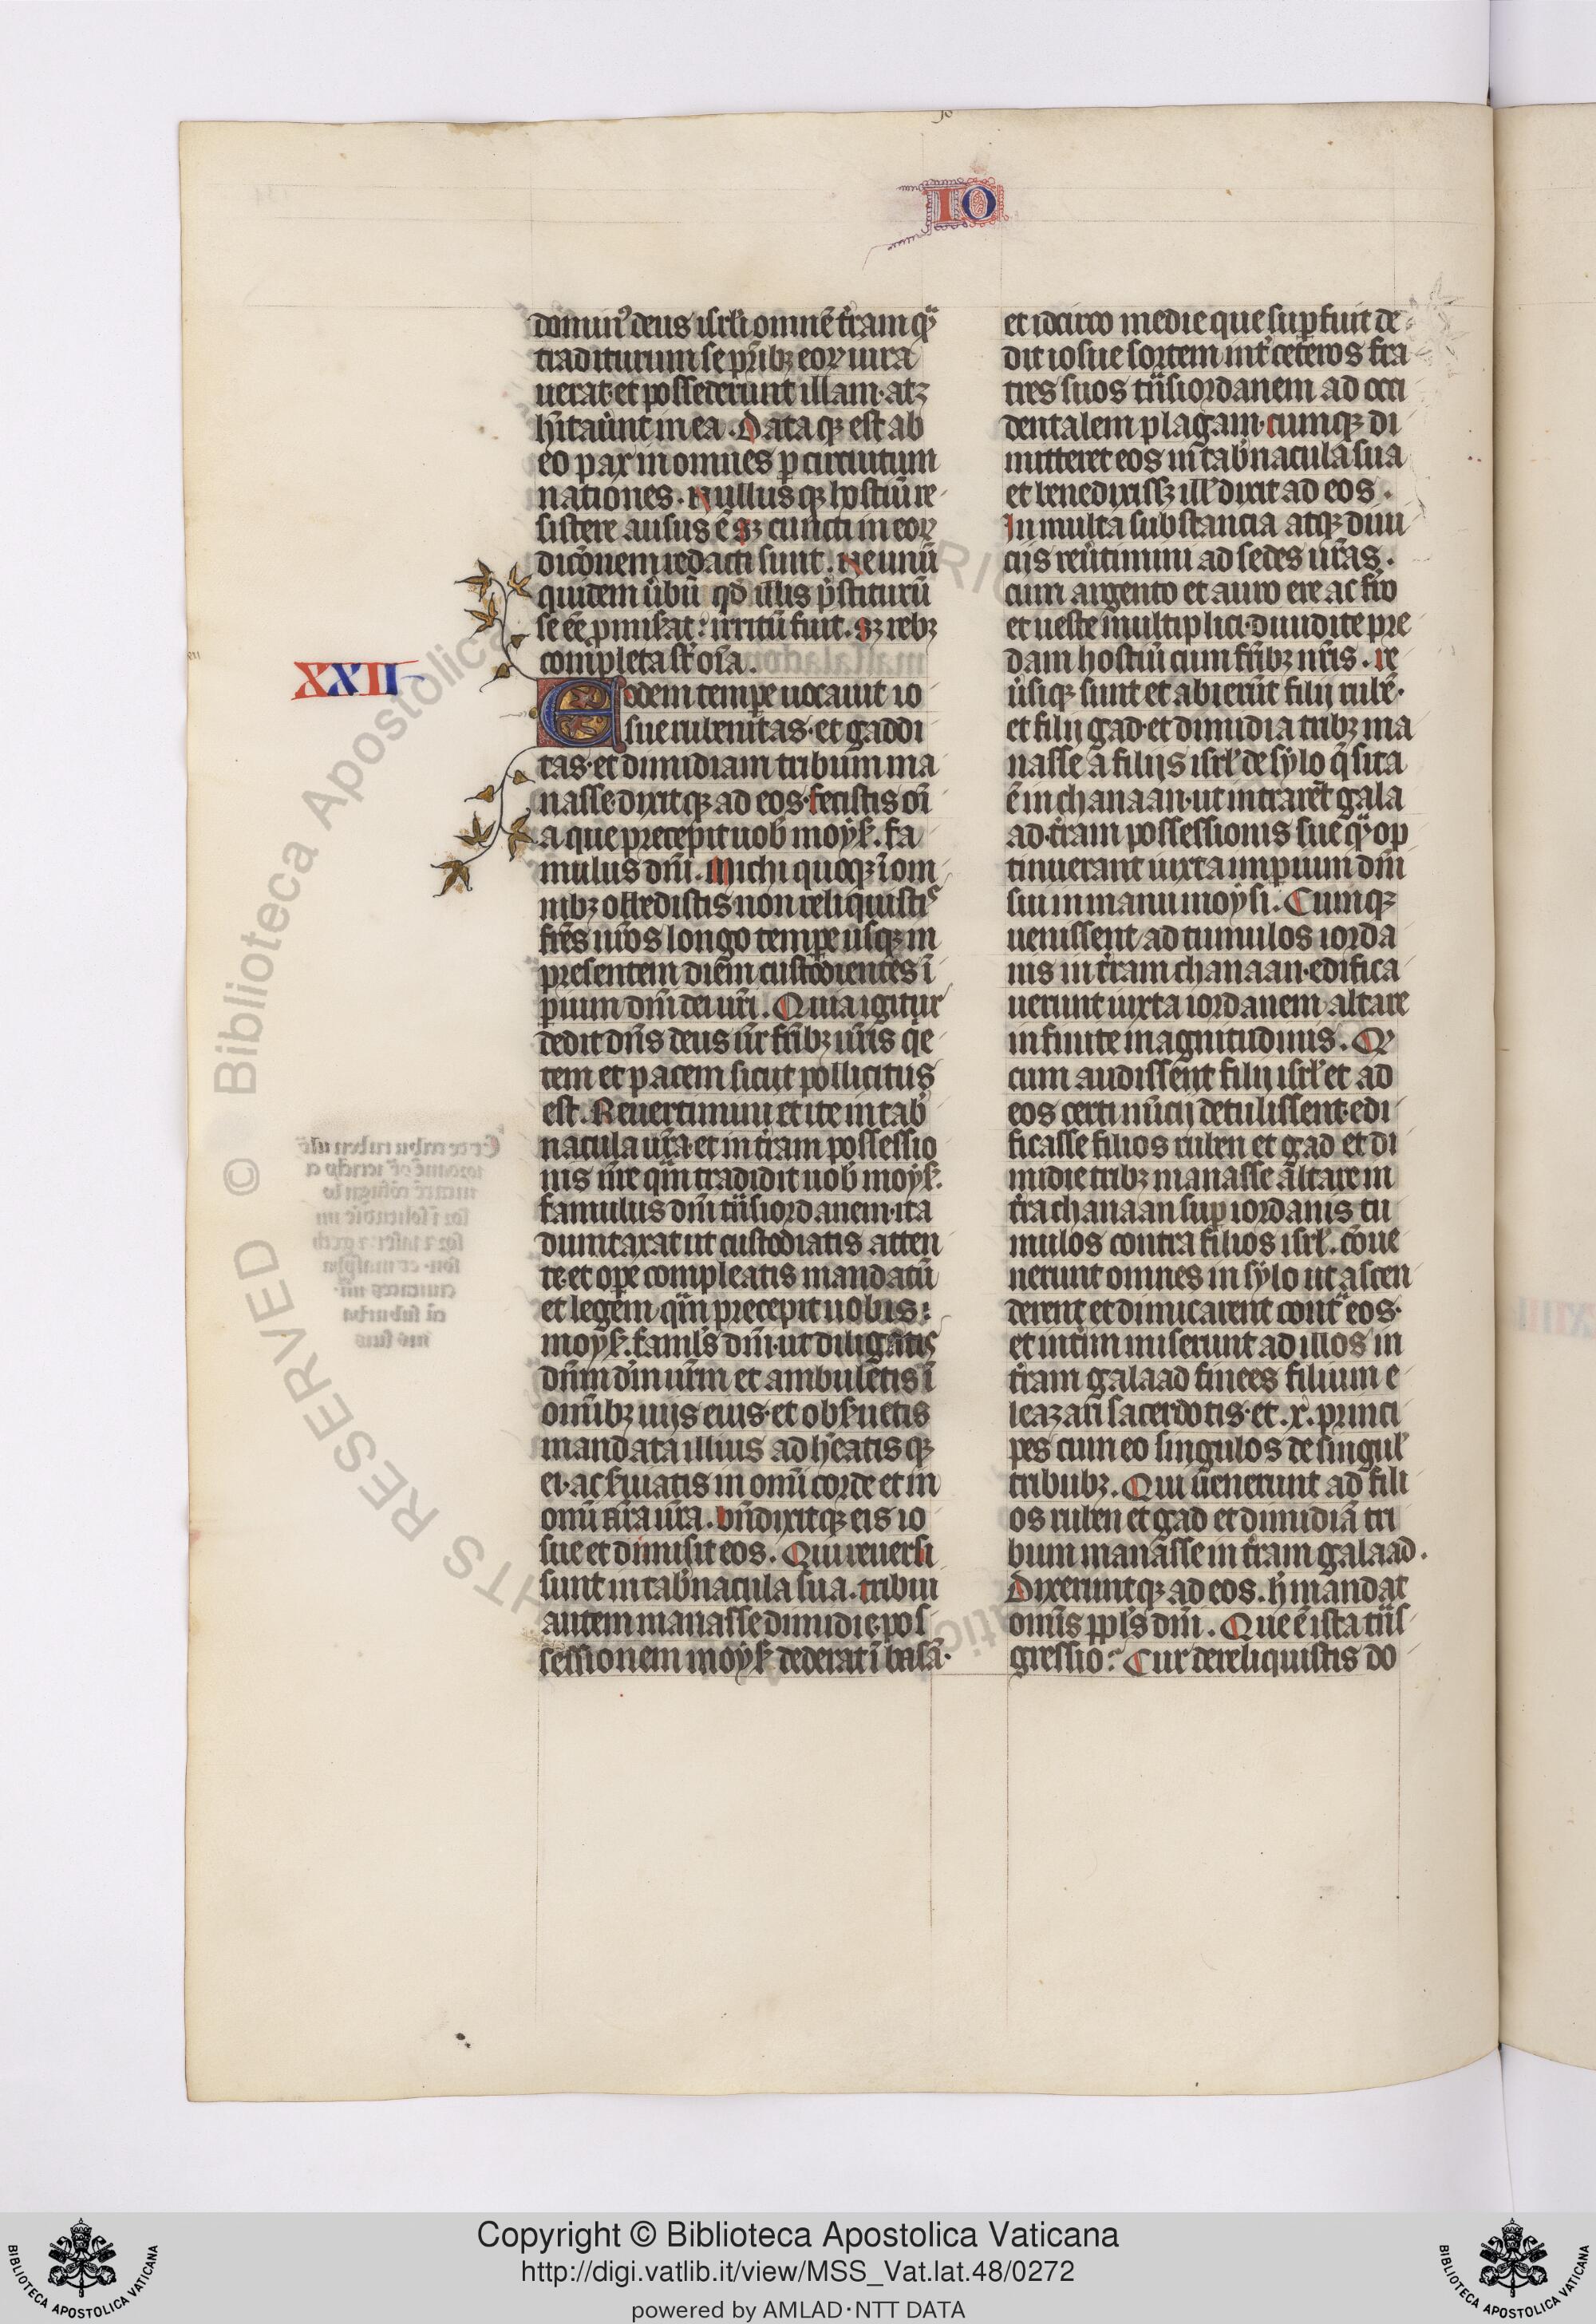 IO
dominꝰ deus isrl̓ omnē t̓ram qͣ̄
traditurum se pr̄ibꝫ eoꝝ iura
uerat· et possederunt illam· atꝫ
hītaūnt in ea . Data qꝫ est ab
eo pax in omnes ꝑ circuitum
nationes. Nullus qꝫ hostiū re
sistere ausus ē sꝫ cuncti in eoꝝ
dicōnem redacti sunt. Ne unū
quidem ůbū qđ illis p̄stiturū
se eē ꝓmiserat: irritū fuit. sꝫ rebꝫ
completa st̄ oīa .
XXII
Eodem tempe uocauit io
sue rubenitas· et gaddi
tas· et dimidiam tribum ma
nasse· dixitqꝫ ad eos· fecistis oī
a que precepit uob̓ moys̓. fa
mulus dn̄i. Michi quoqꝫ ī om
nibꝫ obedistis non reliquistis
fr̄es ur̄os longo tempe usqꝫ in
presentem diem custodientes ī
ꝑium dn̄i dei ur̄i. Quia igitur
dedit dn̄s deus ur̄ fr̄ibꝫ ur̄is q̇e
tem et pacem sicut pollicitus
est. Reuertimini et ite in tab̓
nacula ur̄a· et in t̓ram possessio
nis ur̄e qͣm tradidit uob̓ moys̓.
famulus dn̄i tͣnsiordanem· ita
dumtaxat ut custodiatis atten
te· et ope compleatis mandatū
et legem· qͣm precepit uobis:
moys̓. faml̓s dn̄i· ut diligatis
dn̄m dm̄ ur̄m et ambuletis ī
omībꝫ uijs eius· et obs̓uetis
mandata illius adh̓eatis qꝫ
ei· ac s̓uiatis in omī corde et in
omī aīa ur̄a. bn̄dixitqꝫ eis io
sue et dimisit eos. Qui reuersi
sunt in tab̓nacula sua. tribui
autem manasse dimidie· pos
sessionem moys̓ dederat ī basā·
et idcirco medie que suꝑfuit de
dit iosue sortem int̓ ceteros fra
tres suos tͣnsiordanem ad occi
dentalem plagam· cumqꝫ di
mitteret eos in tab̓nacula sua
et benedixissꝫ ill̓ dixit ad eos .
In multa substancia atqꝫ diui
cijs reůtimini ad sedes ur̄as .
cum argento et auro ere ac f̓ro
et ueste multiplici· diuidite pre
dam hostiū cum fr̄ibꝫ ur̄is . re
ůsiqꝫ sunt et abierūt filij rubē·
et filij gad· et dimidia tribꝫ ma
nasse a filijs isrl̓ de sylo q̄ sita
ē in chanaan· ut intrarēt gala
ad· t̓ram possessionis sue qͣm op
tinuerant iuxta imꝑium dn̄i
siu in manu moysi. Cumqꝫ
uenissent ad tumulos iorda
nis in t̓ram chanaan· edifica
uerunt iuxta iordanem altare
infinite magnitudinis. Qꝫ
cum audissent filij isrl̓ et ad
eos certi nūcij detulissent· edi
ficasse filios ruben et gad et di
midie tribꝫ manasse altare in
t̓ra chanaan suꝑ iordanis tu
mulos contra filios isrl̓. cōue
nerunt omnes in sylo ut ascen
derent et dimicarent contͣ eos·
et intim miserunt ad illos in
t̓ram galaad finees filium e
leazari sacerdotis· et .x. princi
pes cum eo singulos de singul̓
tribubꝫ. Qui uenerunt ad fili
os ruben et gad et dimidiā tri
bum manasse in t̓ram galaad.
Dixeruntqꝫ ad eos. h̓ mandat
omīs ppl̓s dn̄i . Que ē ista tͣns
gressio? Cur dereliquistis do
Copyright © Biblioteca Apostolica Vaticana
http://digi.vatlib.it/view/MSS_Vat.lat.48/0272
powered by AMLAD·NTT DATA
BIBLIOTECA APOSTOLICA VATICANA
BIBLIOTECA APOSTOLICA VATICANA